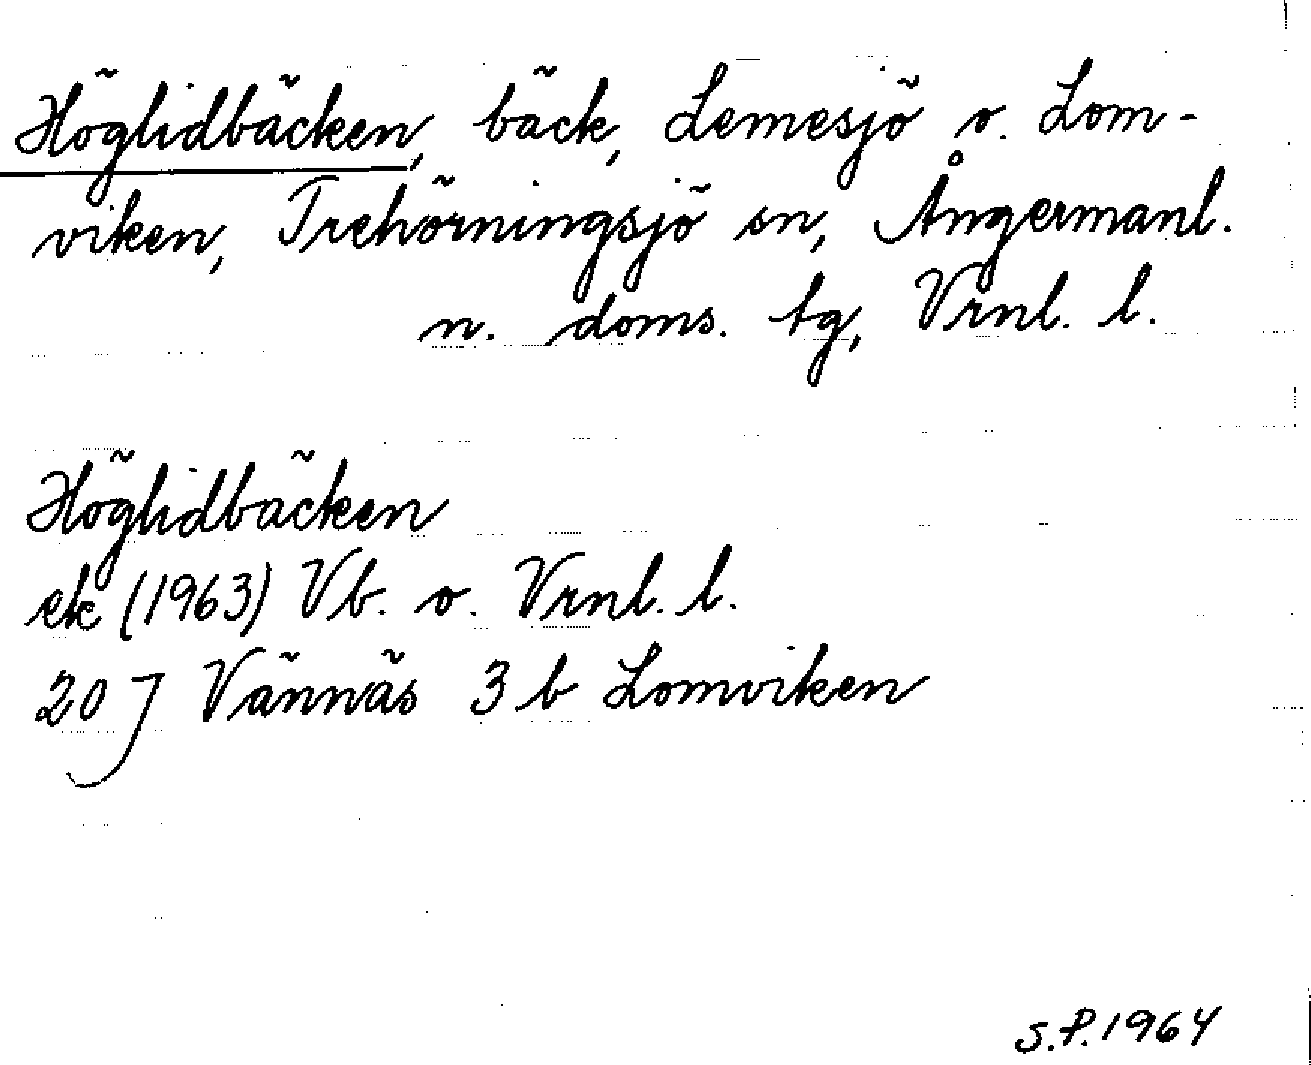 Höglidbäcken, bäck, Lemesjö o. Lom-
viken, Trehörningsjö sn, Ångermanl.
n. doms. tg, Vrnl. l.
Höglidbäcken
ek (1963) Vb. o. Vrnl. l.
20 J Vännäs 3 b Lomviken
S.P. 1964